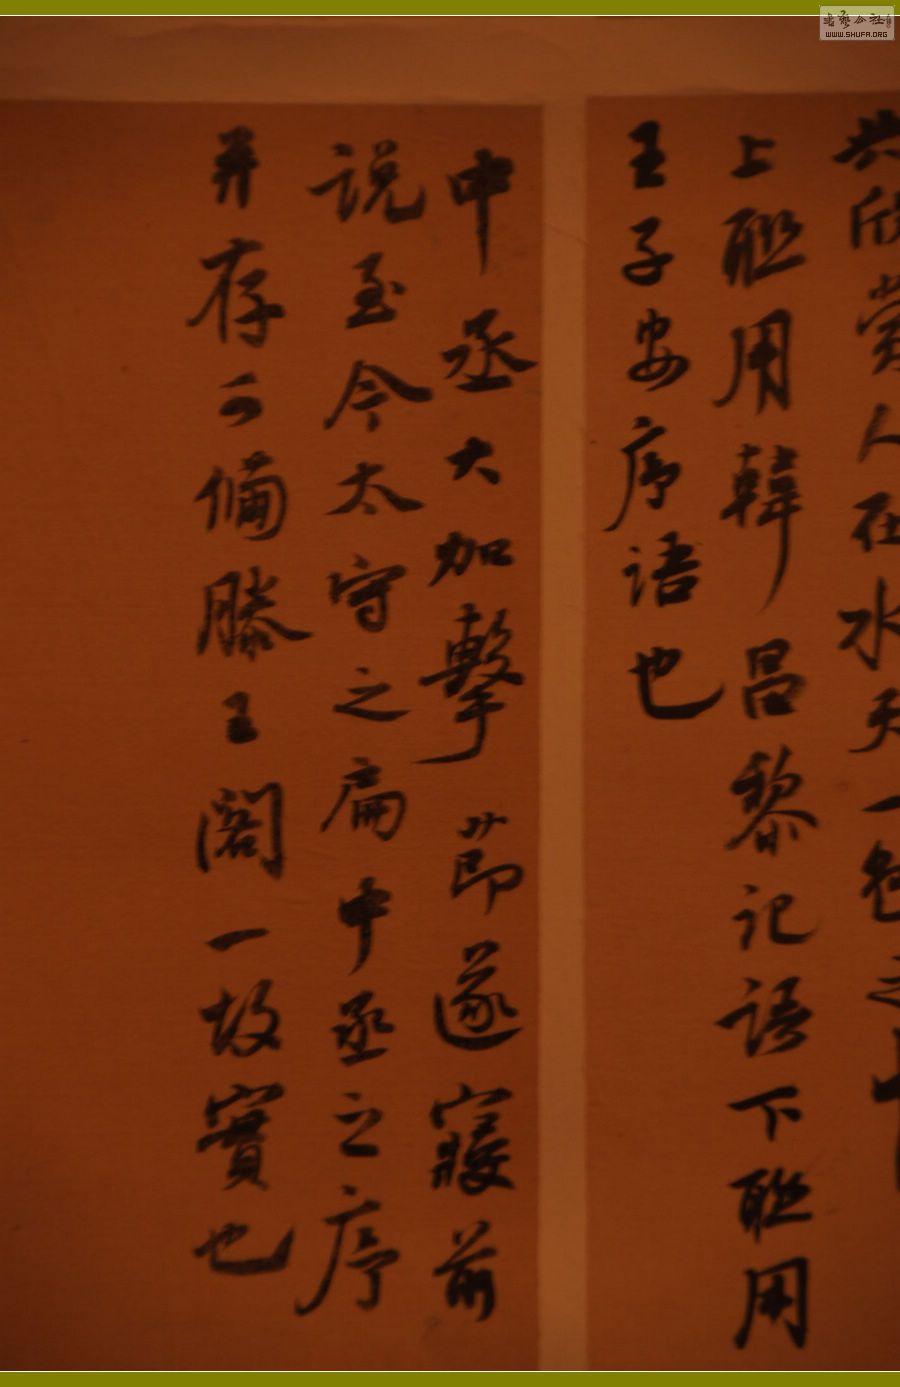 共欣赏人在水天一色之中
上联用韩昌黎记语下联用
王子安序语也
中丞大加擊节遂寝前
说至今太守之扁中丞之序
并存可備滕王阁一故實也
WWW.SHUFA.ORG